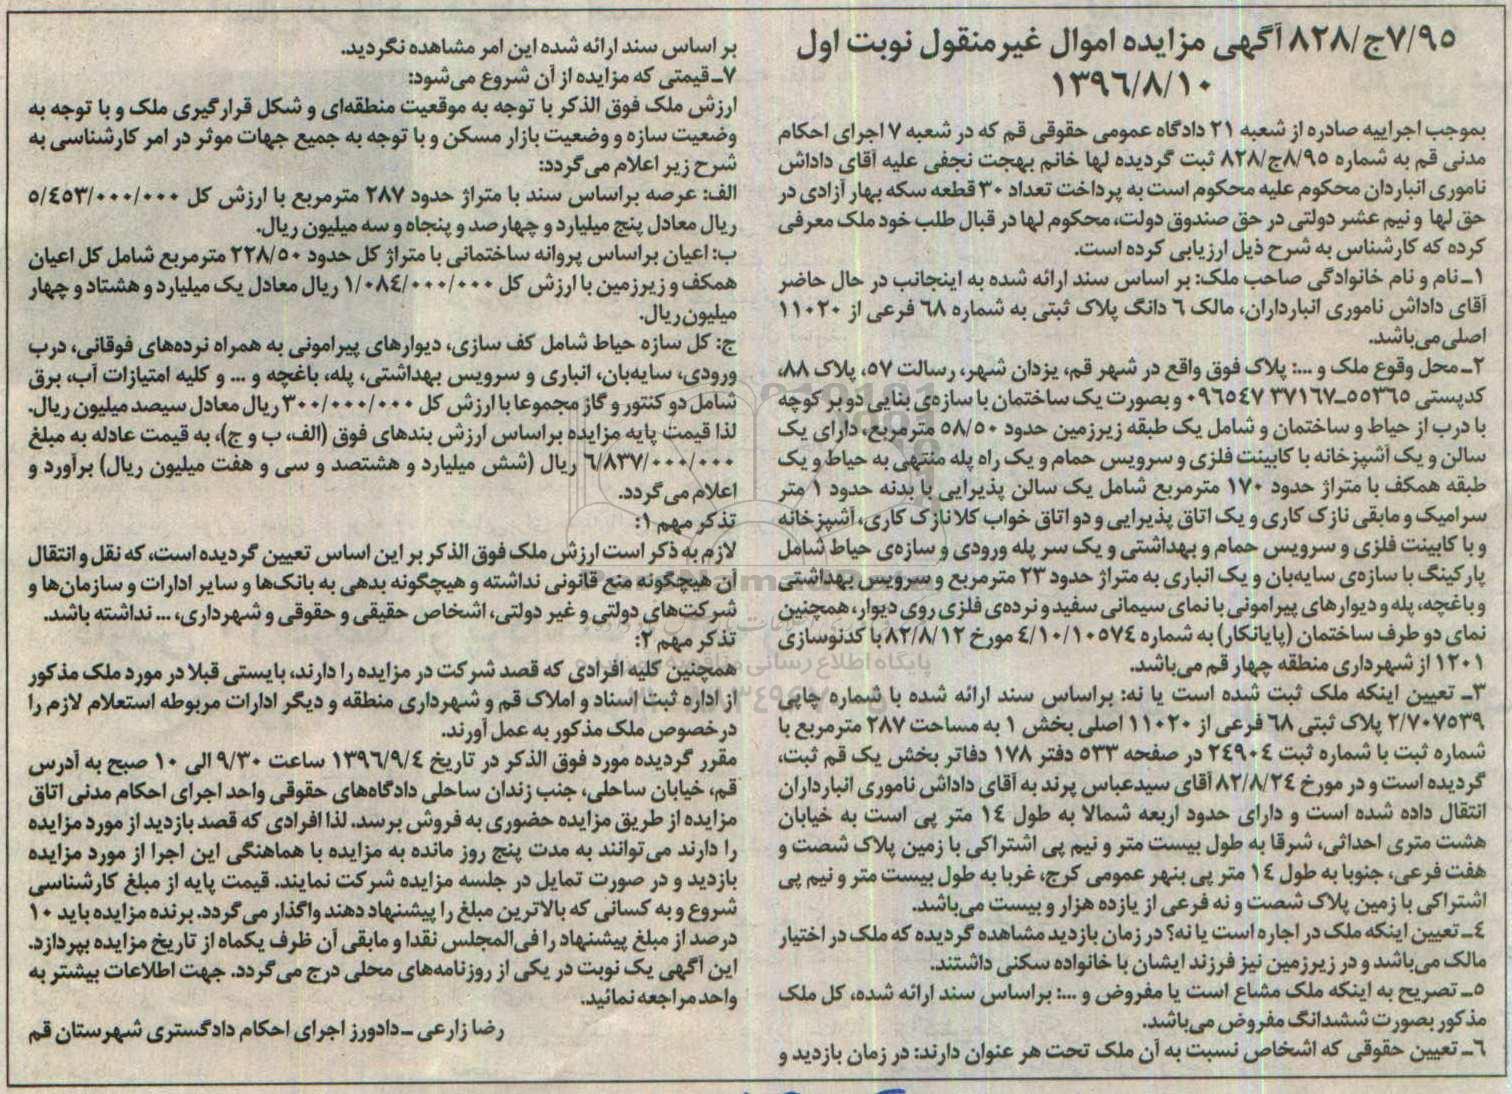 ۷/۹۵ج/۸۲۸ آگهی مزایده اموال غیرمنقول نوبت اول
۱۳۹۶/۸/۱۰
بموجب اجراییه صادره از شعبه ۲۱ دادگاه عمومی حقوقی قم که در شعبه ۷ اجرای احکام
مدنی قم به شماره ۸/۹۵ج/۸۲۸ ثبت گردیده لها خانم بهجت نجفی علیه آقای داداش
ناموری انباردان محکوم علیه محکوم است به پرداخت تعداد ۳۰ قطعه سکه بهار آزادی در
حق لها و نیم عشر دولتی در حق صندوق دولت، محکوم لها در قبال طلب خود ملک معرفی
کرده که کارشناس به شرح ذیل ارزیابی کرده است.
۱ـ نام و نام خانوادگی صاحب ملک: بر اساس سند ارائه شده به اینجانب در حال حاضر
آقای داداش ناموری انبارداران، مالک ۶ دانگ پلاک ثبتی به شماره ۶۸ فرعی از ۱۱۰۲۰
اصلی می‌باشد.
۲ـ محل وقوع ملک و ...: پلاک فوق واقع در شهر قم، یزدان شهر، رسالت ۵۷، پلاک ۸۸،
کدپستی ۵۵۳۶۵ـ۳۷۱۶۷ ۰۹۶۵۴۷ و بصورت یک ساختمان با سازه‌ی بنایی دو بر کوچه
با درب از حیاط و ساختمان و شامل یک طبقه زیرزمین حدود ۵۸/۵۰ مترمربع، دارای یک
سالن و یک آشپزخانه با کابینت فلزی و سرویس حمام و یک راه پله منتهی به حیاط و یک
طبقه همکف با متراژ حدود ۱۷۰ مترمربع شامل یک سالن پذیرایی با بدنه حدود ۱ متر
سرامیک و مابقی نازک کاری و یک اتاق پذیرایی و دو اتاق خواب کلا نازک کاری، آشپزخانه
و با کابینت فلزی و سرویس حمام و بهداشتی و یک سر پله ورودی و سازه‌ی حیاط شامل
پارکینگ با سازه‌ی سایه‌بان و یک انباری به متراژ حدود ۲۳ مترمربع و سرویس بهداشتی
و باغچه، پله و دیوارهای پیرامونی با نمای سیمانی سفید و نرده‌ی فلزی روی دیوار، همچنین
نمای دو طرف ساختمان (پایانکار) به شماره ۴/۱۰/۱۰۵۷۴ مورخ ۸۲/۸/۱۲ با کدنوسازی
۱۲۰۱ از شهرداری منطقه چهار قم می‌باشد.
۳ـ تعیین اینکه ملک ثبت شده است یا نه: براساس سند ارائه شده با شماره چاپی
۲/۷۰۷۵۳۹ پلاک ثبتی ۶۸ فرعی از ۱۱۰۲۰ اصلی بخش ۱ به مساحت ۲۸۷ مترمربع با
شماره ثبت با شماره ثبت ۲۴۹۰۴ در صفحه ۵۳۳ دفتر ۱۷۸ دفاتر بخش یک قم ثبت،
گردیده است و در مورخ ۸۲/۸/۲۴ آقای سیدعباس پرند به آقای داداش ناموری انبارداران
انتقال داده شده است و دارای حدود اربعه شمالا به طول ۱۴ متر پی است به خیابان
هشت متری احداثی، شرقا به طول بیست متر و نیم پی اشتراکی با زمین پلاک شصت و
هفت فرعی، جنوبا به طول ۱۴ متر پی بنهر عمومی کرج، غربا به طول بیست متر و نیم پی
اشتراکی با زمین پلاک شصت و نه فرعی از یازده هزار و بیست می‌باشد.
۴ـ تعیین اینکه ملک در اجاره است یا نه؟ در زمان بازدید مشاهده گردیده که ملک در اختیار
مالک می‌باشد و در زیرزمین نیز فرزند ایشان با خانواده سکنی داشتند.
۵ـ تصریح به اینکه ملک مشاع است یا مفروض و ...: براساس سند ارائه شده، کل ملک
مذکور بصورت ششدانگ مفروض می‌باشد.
۶ـ تعیین حقوقی که اشخاص نسبت به آن ملک تحت هر عنوان دارند: در زمان بازدید و
بر اساس سند ارائه شده این امر مشاهده نگردید.
۷ـ قیمتی که مزایده از آن شروع می‌شود:
ارزش ملک فوق الذکر با توجه به موقعیت منطقه‌ای و شکل قرارگیری ملک و با توجه به
وضعیت سازه و وضعیت بازار مسکن و با توجه به جمیع جهات موثر در امر کارشناسی به
شرح زیر اعلام می‌گردد:
الف: عرصه براساس سند با متراژ حدود ۲۸۷ مترمربع با ارزش کل ۵/۴۵۳/۰۰۰/۰۰۰
ریال معادل پنج میلیارد و چهارصد و پنجاه و سه میلیون ریال.
ب: اعیان براساس پروانه ساختمانی با متراژ کل حدود ۲۲۸/۵۰ مترمربع شامل کل اعیان
همکف و زیرزمین با ارزش کل ۱/۰۸۴/۰۰۰/۰۰۰ ریال معادل یک میلیارد و هشتاد و چهار
میلیون ریال.
ج: کل سازه حیاط شامل کف سازی، دیوارهای پیرامونی به همراه نرده‌های فوقانی، درب
ورودی، سایه‌بان، انباری و سرویس بهداشتی، پله، باغچه و ... و کلیه امتیازات آب، برق
شامل دو کنتور و گاز مجموعا با ارزش کل ۳۰۰/۰۰۰/۰۰۰ ریال معادل سیصد میلیون ریال.
لذا قیمت پایه مزایده براساس ارزش بندهای فوق (الف، ب و ج)، به قیمت عادله به مبلغ
۶/۸۳۷/۰۰۰/۰۰۰ ریال (شش میلیارد و هشتصد و سی و هفت میلیون ریال) برآورد و
اعلام می‌گردد.
تذکر مهم ۱:
لازم به ذکر است ارزش ملک فوق الذکر بر این اساس تعیین گردیده است، که نقل و انتقال
آن هیچگونه منع قانونی نداشته و هیچگونه بدهی به بانک‌ها و سایر ادارات و سازمان‌ها و
شرکت‌های دولتی و غیر دولتی، اشخاص حقیقی و حقوقی و شهرداری، ... نداشته باشد.
تذکر مهم ۲:
همچنین کلیه افرادی که قصد شرکت در مزایده را دارند، بایستی قبلا در مورد ملک مذکور
از اداره ثبت اسناد و املاک قم و شهرداری منطقه و دیگر ادارات مربوطه استعلام لازم را
درخصوص ملک مذکور به عمل آورند.
مقرر گردیده مورد فوق الذکر در تاریخ ۱۳۹۶/۹/۴ ساعت ۹/۳۰ الی ۱۰ صبح به آدرس
قم، خیابان ساحلی، جنب زندان ساحلی دادگاه‌های حقوقی واحد اجرای احکام مدنی اتاق
مزایده از طریق مزایده حضوری به فروش برسد. لذا افرادی که قصد بازدید از مورد مزایده
را دارند می‌توانند به مدت پنج روز مانده به مزایده با هماهنگی این اجرا از مورد مزایده
بازدید و در صورت تمایل در جلسه مزایده شرکت نمایند. قیمت پایه از مبلغ کارشناسی
شروع و به کسانی که بالاترین مبلغ را پیشنهاد دهند واگذار می‌گردد. برنده مزایده باید ۱۰
درصد از مبلغ پیشنهاد را فی‌المجلس نقدا و مابقی آن ظرف یکماه از تاریخ مزایده بپردازد.
این آگهی یک نوبت در یکی از روزنامه‌های محلی درج می‌گردد. جهت اطلاعات بیشتر به
واحد مراجعه نمائید.
رضا زارعی ـ دادورز اجرای احکام دادگستری شهرستان قم